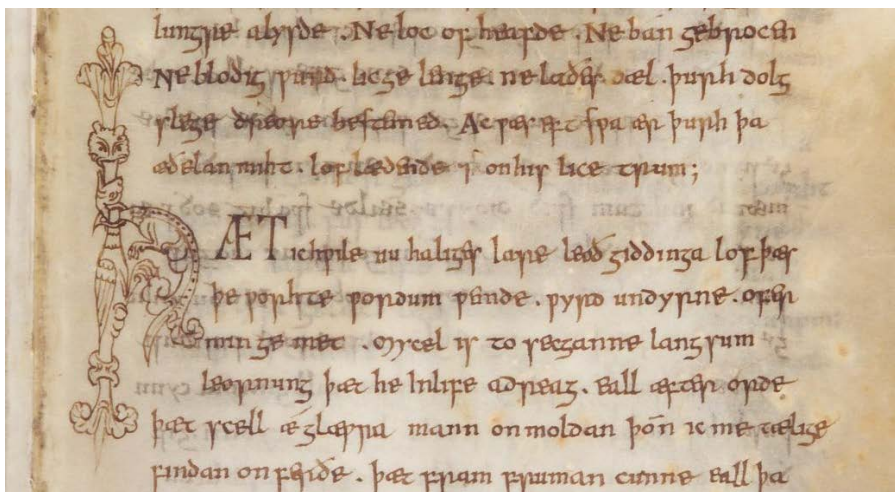 lungre alysde . Ne loc of heafde . Ne ban gebrocen
Ne blodig ƿund . lice ge lenge . ne laðes dæl . þurh dolg
slege dreore bestemed . Ac ƿæs eft sƿa ær þurh þa
æðelan miht . lof lædende ⁊ on his lice trum;
HÆT ic hƿile nu haliges lare leoð giddinga lof þæs
þe ƿorhte ƿordum ƿemde . ƿyrd undyrne . ofer
min ge met . Mycel is to secganne langsum
leornung þæt he in life adreag . eall æfter orde
þæt scell æ glæƿra mann on moldan þoñ ic me tælige
findan on ferðe . þæt fram fruman cunne eall þa